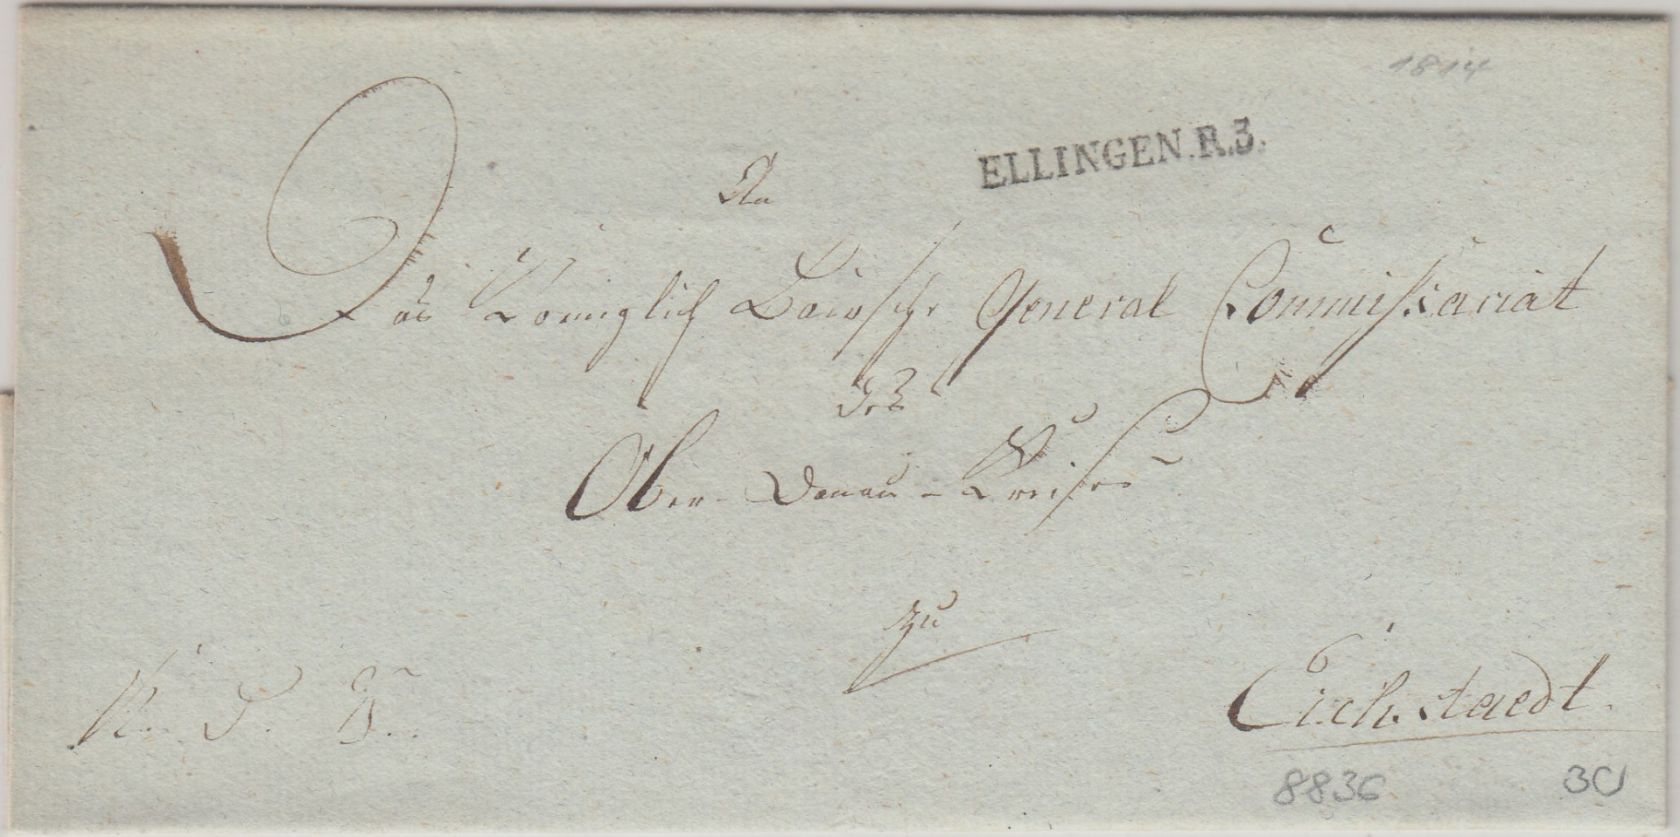 1814
ELLINGEN.R.3.
An
Das Königlich Baiersche General Commissariat
des
Ober-Donau-Kreises
zu
Eichstaedt.
R. S.
8836
30